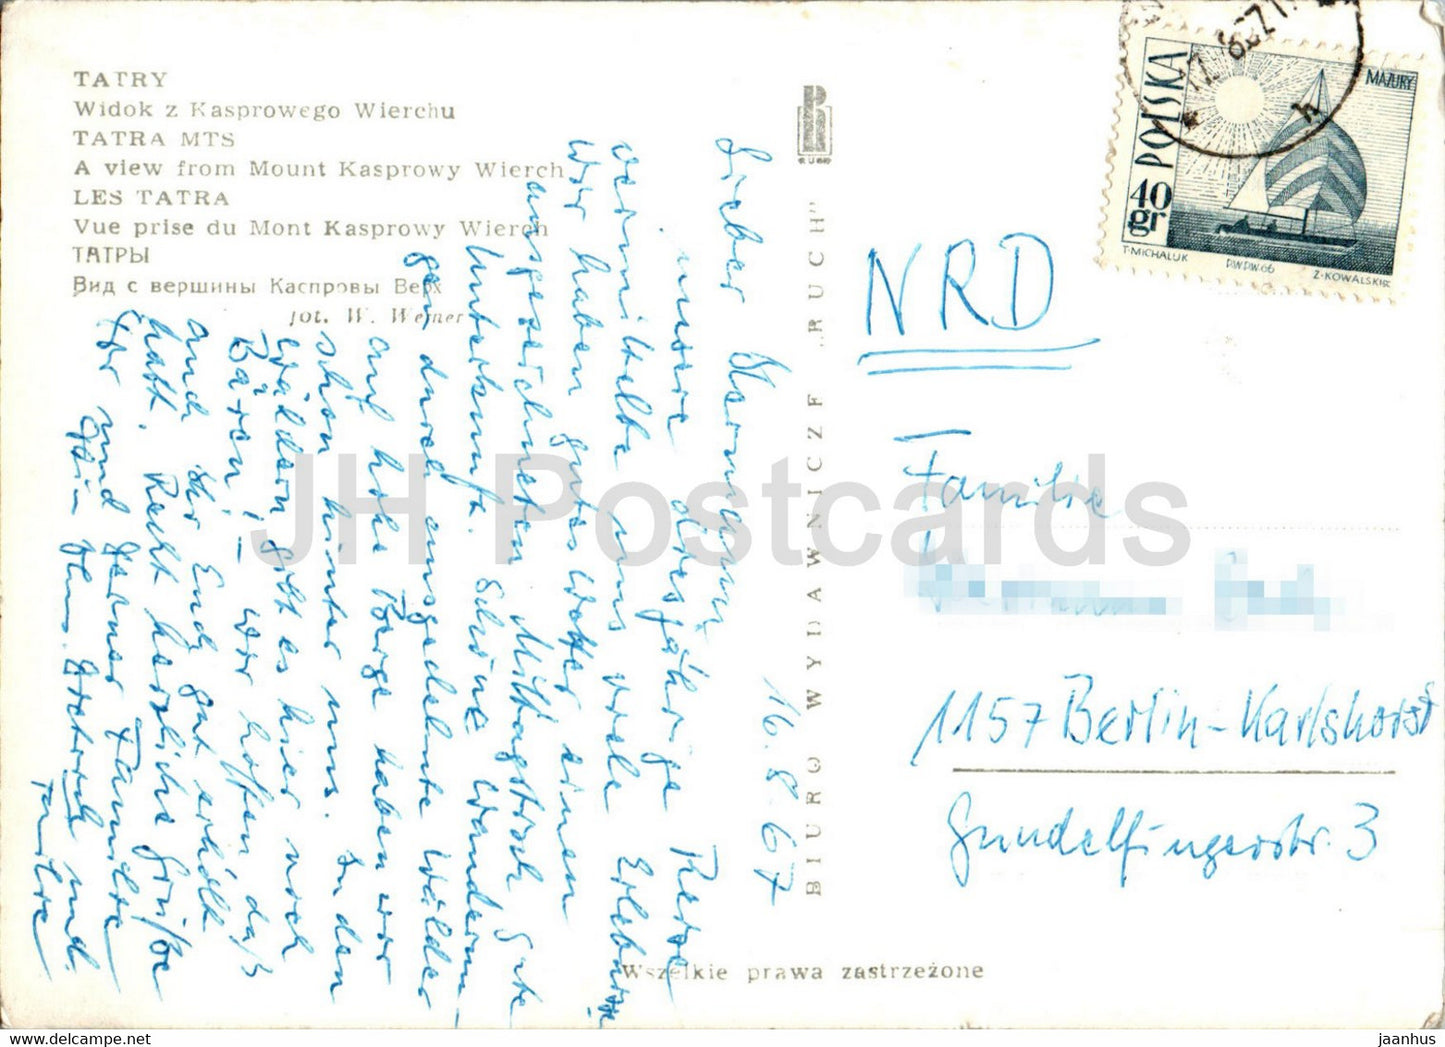 TATRY
Widok z Kasprowego Wierchu
TATRA MTS
A view from Mount Kasprowy Wierch
LES TATRA
Vue prise du Mont Kasprowy Wierch
ТАТРЫ
Вид с вершины Каспровы Верх
fot. W. Werner
RUCH
BIURO WYDAWNICZE „RUCH"
Wszelkie prawa zastrzeżone
POLSKA
40
gr
MAZURY
T-MICHALUK
PWPW.66
Z-KOWALSKI
16.8.67
Lieber Hermann,
unsere diesjährige Reise
vermittelte uns viele Erlebnisse
Wir haben gutes Wetter einen
ausgezeichneten Mittagstisch gute
Unterkunft. Schöne Wanderun-
gen durch ausgedehnte Wälder
auf hohe Berge haben wir
schon hinter uns. In den
Wäldern gibt es hier noch
Bären! - Wir hoffen daß
auch Ihr Euch gut erholt
habt. Recht herzliche Grüße
Dir und Deiner Familie
NRD
Familie
1157 Berlin-Karlshorst
Gundelfingerstr. 3
JH Postcards
jaanhus